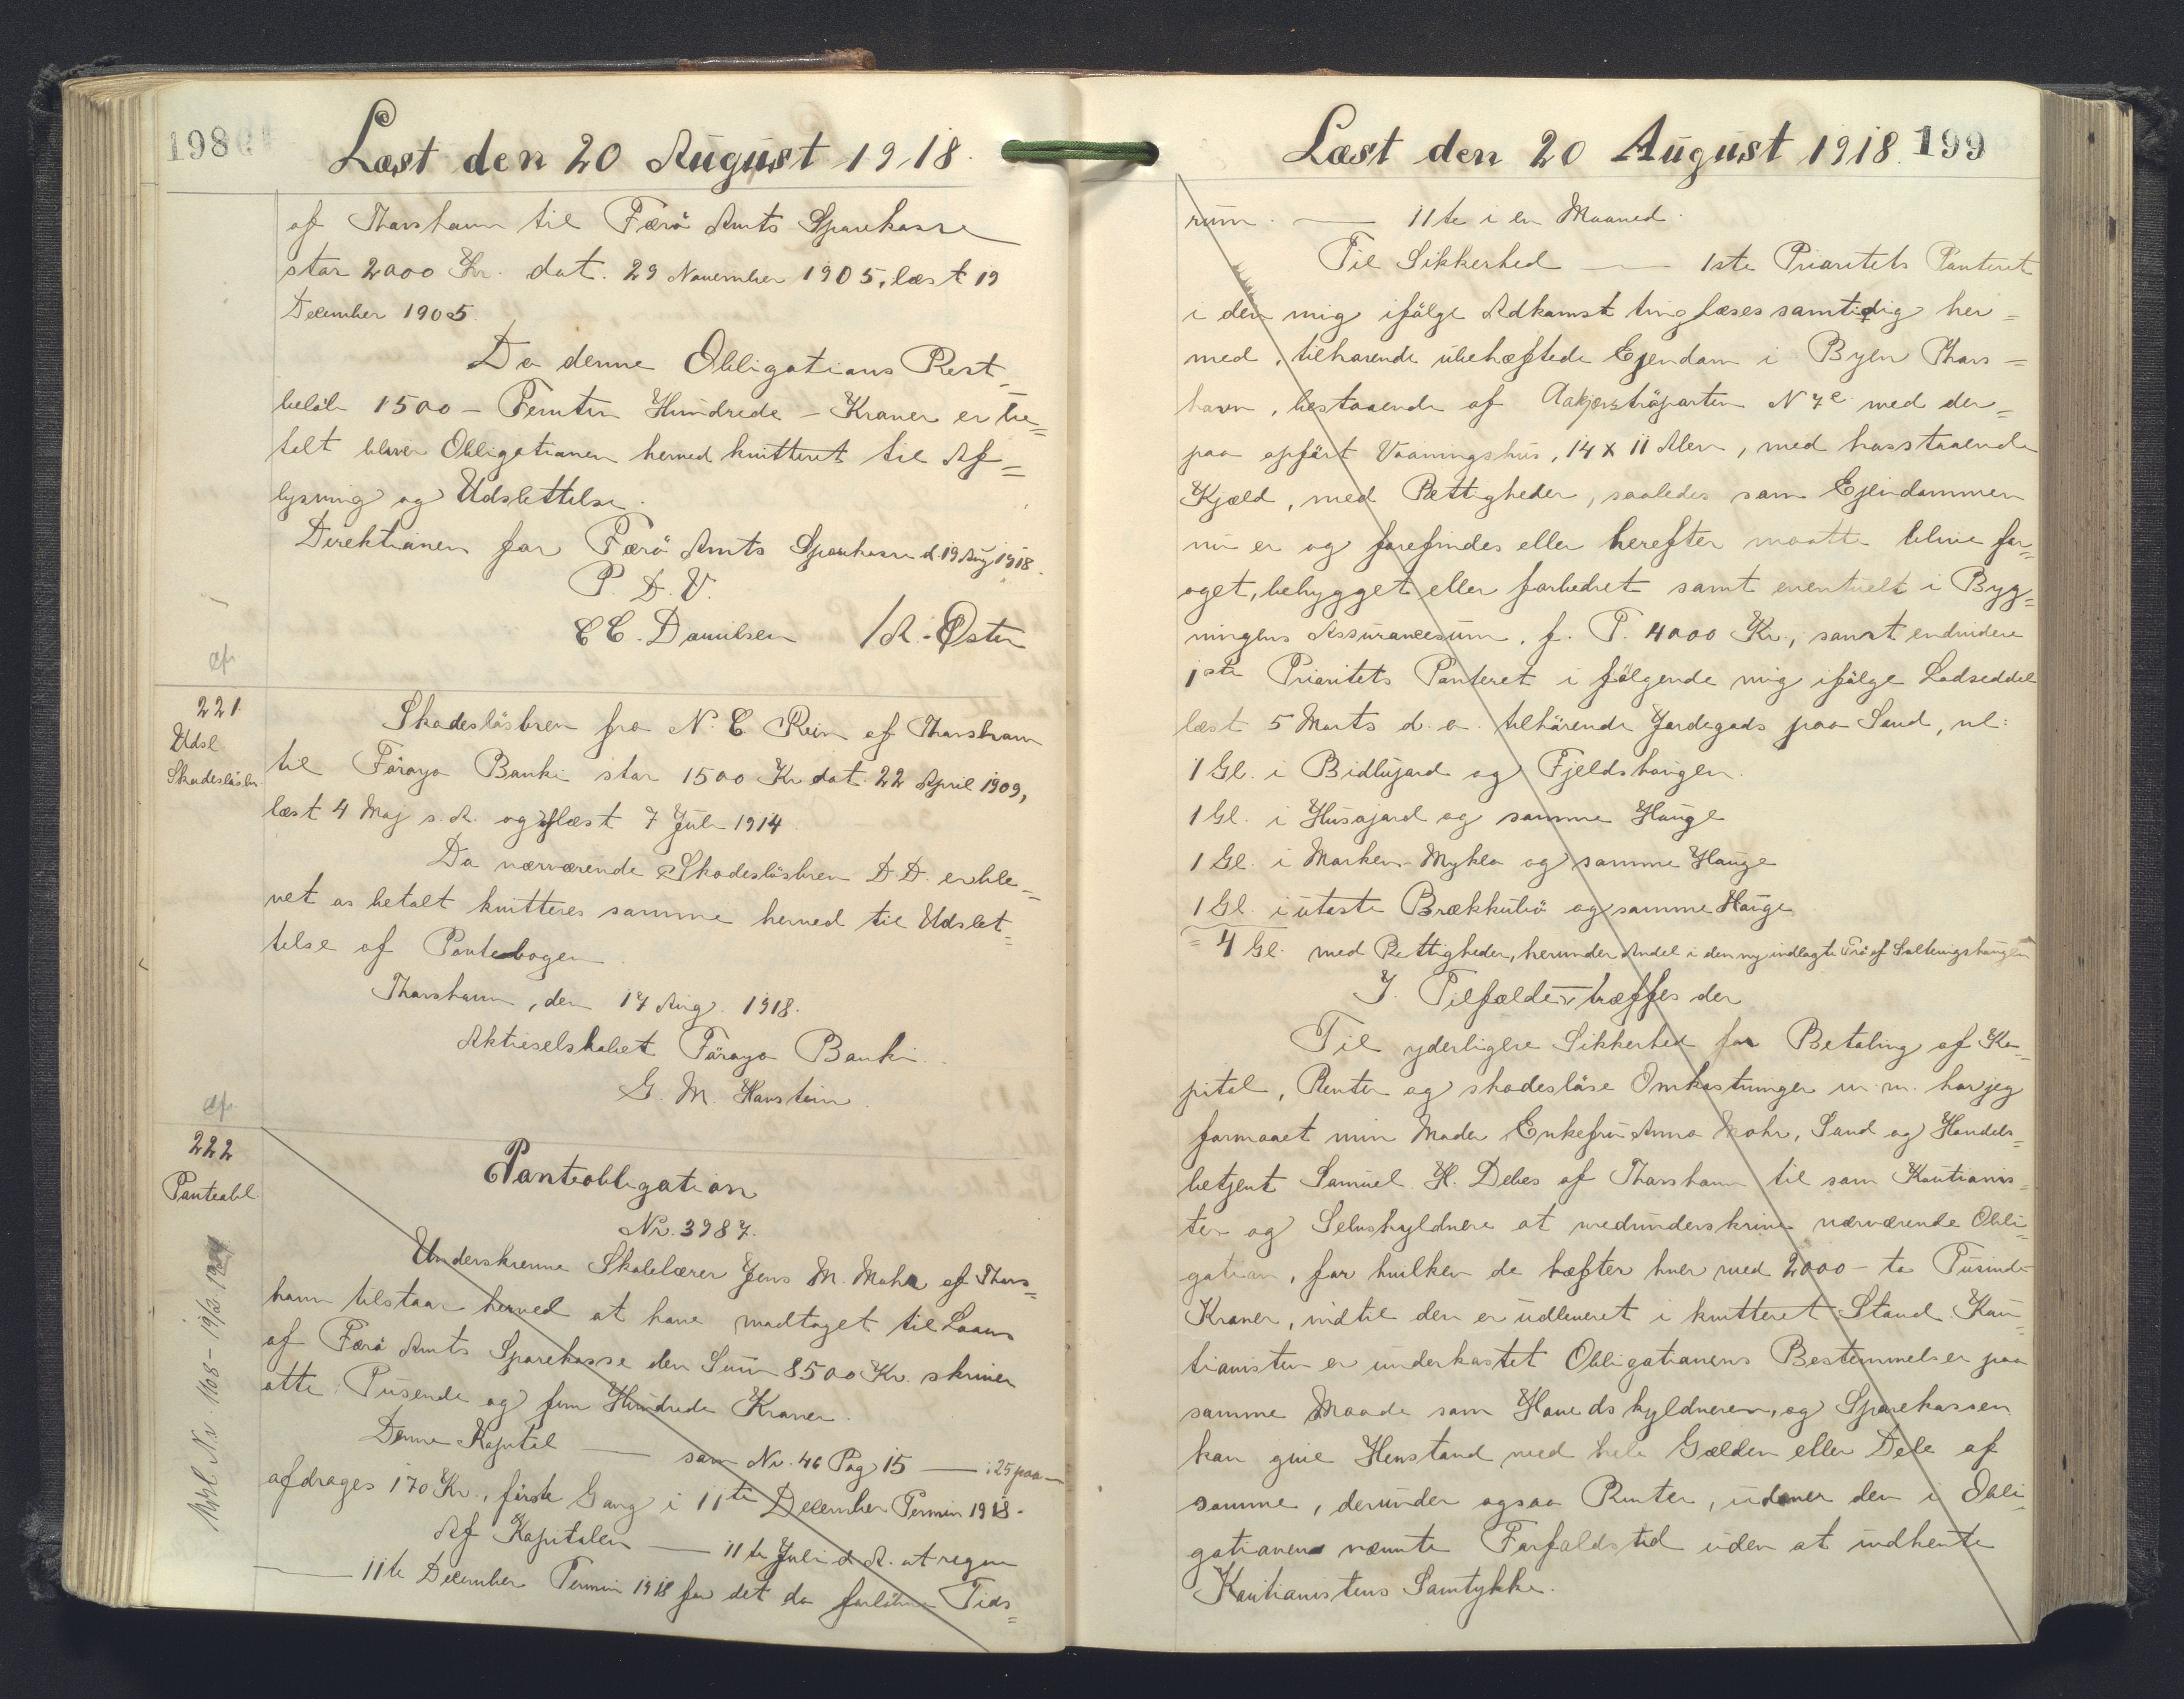 198
Læst den 20 August 1918.
af Thorshavn til Færö Amts Sparekasse
stor 2000 Kr. dat. 29 November 1905, læst 19
December 1905.
Da denne Obligations Rest-
beløb 1500 - Femten Hundrede - Kroner er be=
talt bliver Obligationen herved kvitteret til Af=
lysning og Udslettelse.
Direktionen for Færö Amts Sparekasse d. 19 Aug 1918.
P. D. V.
C C. Danielsen / A. Øster
cfr
221.
Udsl
Skadesløsbr.
Skadesløsbrev fra N. C Rein af Thorshavn
til Föroya Banki stor 1500 Kr dat. 22 April 1909,
læst 4 Maj s. A. og aflæst 7 Juli 1914.
Da nærværende Skadesløsbrev D.D. er ble=
vet os betalt kvitteres samme herved til Udslet=
telse af Pantebogen.
Thorshavn, den 17 Aug. 1918.
Aktieselskabet Föroya Banki.
G. M. Hanstein.
cfr.
222
Panteobl.
Panteobligation
Nr. 3987.
Underskrevne Skolelærer Jens M. Mohr af Thors=
havn tilstaar herved at have modtaget til Laans
af Færö Amts Sparekasse den Sum 8500 Kr. skriver
otte Tusende og fem Hundrede Kroner.
Denne Kapital — som Nr. 46 Pag 15 — i 25 paa —
afdrages 170 Kr., første Gang i 11te December Termin 1918.
Af Kapitalen — 11te Juli d. A. at regne
— 11te December Termin 1918 for det da forløbne Tids=
199
Læst den 20 August 1918.
rum. — 11te i en Maaned.
Til Sikkerhed — 1ste Prioritets Panteret
i den mig ifølge Adkomst tinglæses samtidig her=
med, tilhørende ubehæftede Ejendom i Byen Thors=
havn, bestaaende af Aakjærströparten N 7e med der=
paa opført Vaaningshus, 14 x 11 Alen, med hosstaaende
Kjæld, med Rettigheder, saaledes som Ejendommen
nu er og forefindes eller herefter maatte blive for=
øget, bebygget eller forbedret samt eventuelt i Byg=
ningens Assurancesum, f. T. 4000 Kr., samt endvidere
1ste Prioritets Panteret i følgende mig ifølge Lodseddel
læst 5 Marts d. a. tilhørende Jordegods paa Sand, nl:
1 Gl. i Bidlugard og Fjeldshaugen.
1 Gl. i Husagard og samme Hauge
1 Gl. i Marken-Mykla og samme Hauge
1 Gl. i uteste Brækkubö og samme Hauge
= 4 Gl. med Rettigheder, herunder Andel i den ny indlagte Trö af Salteingshaugen
I. Tilfælde træffes der
Til yderligere Sikkerhed for Betaling af Ka=
pital, Renter og skadesløse Omkostninger m. m. har jeg
formaaet min Moder Enkefru Anna Mohr, Sand og Handels=
betjent Samuel H. Debes af Thorshavn til som Kautionis=
ter og Selvskyldnere at medunderskrive nærværende Obli=
gation, for hvilken de hæfter hver med 2000 - to Tusinde
Kroner, indtil den er udleveret i kvitteret Stand. Kau=
tionisten er underkastet Obligationens Bestemmelser paa
samme Maade som Hovedskyldneren, og Sparekassen
kan give Henstand med hele Gælden eller Dele af
samme, derunder ogsaa Renter, udover den i Obli=
gationen nævnte Forfaldstid uden at indhente
Kautionistens Samtykke.